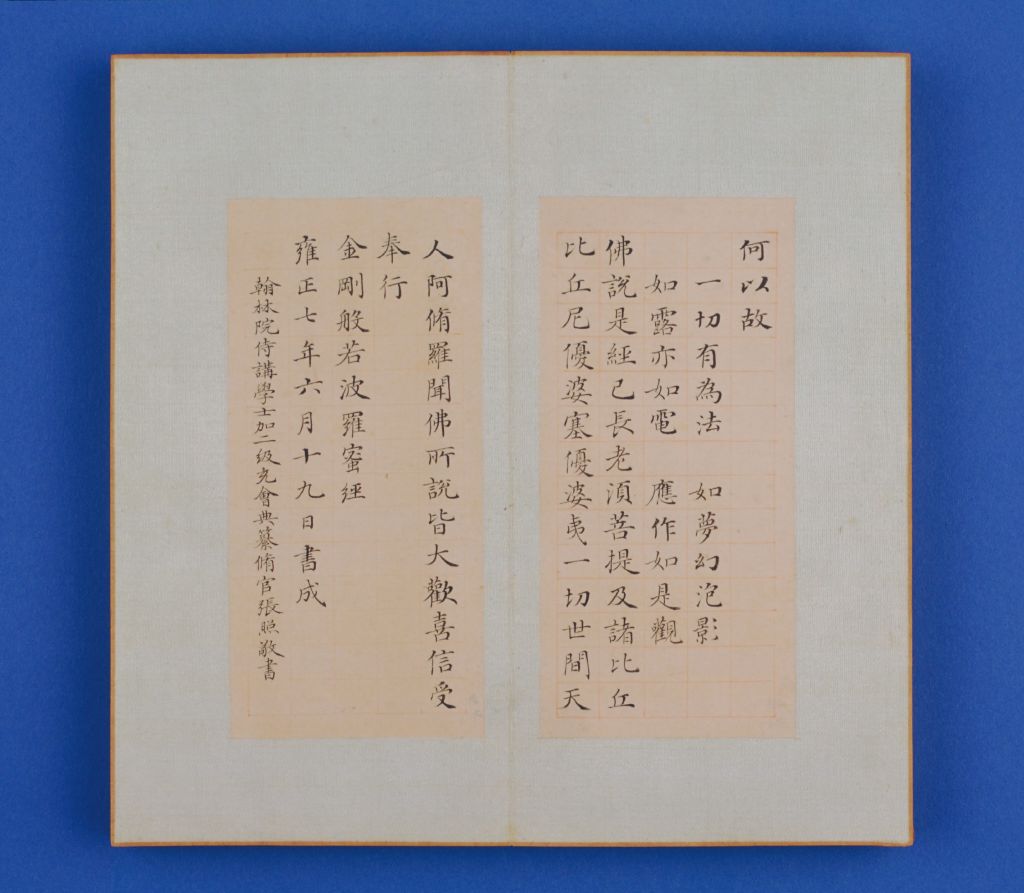 何以故
一切有為法 如夢幻泡影
如露亦如電 應作如是觀
佛說是經已長老須菩提及諸比丘
比丘尼優婆塞優婆夷一切世間天
人阿脩羅聞佛所說皆大歡喜信受
奉行
金剛般若波羅蜜經
雍正七年六月十九日書成
翰林院侍講學士加二級充會典纂脩官張照敬書